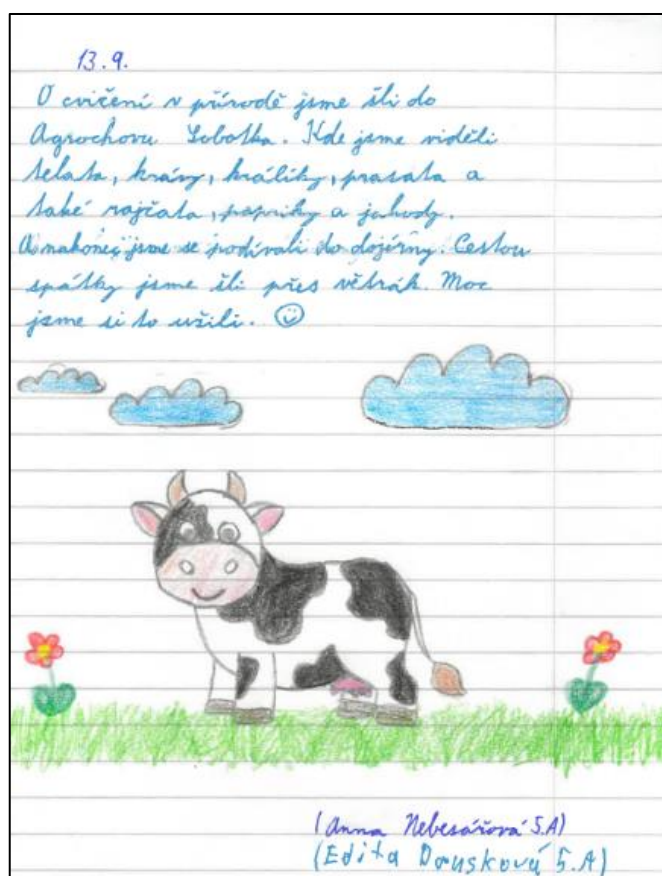 13.9.
O cvičení v přírodě jsme šli do
Agrochovu Sobotka. Kde jsme viděli
telata, krávy, králíky, prasata a
také rajčata, papriky a jahody.
A nakonec jsme se podívali do dojírny. Cestou
spátky jsme šli přes větrák. Moc
jsme si to užili. ☺
(Anna Nebesářová 5.A)
(Edita Drusková 5.A)